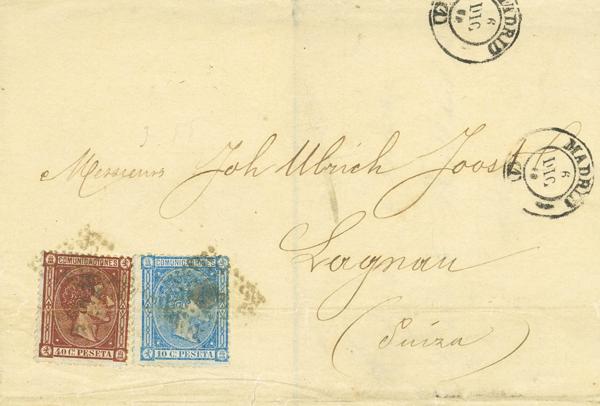 MADRID
6
DIC
MADRID
6
DIC
Messieurs Joh Ulrich Joost
Lagnau
(Suiza)
COMUNICACIONES
40 C. PESETA
COMUNICACIONES
10 C. PESETA